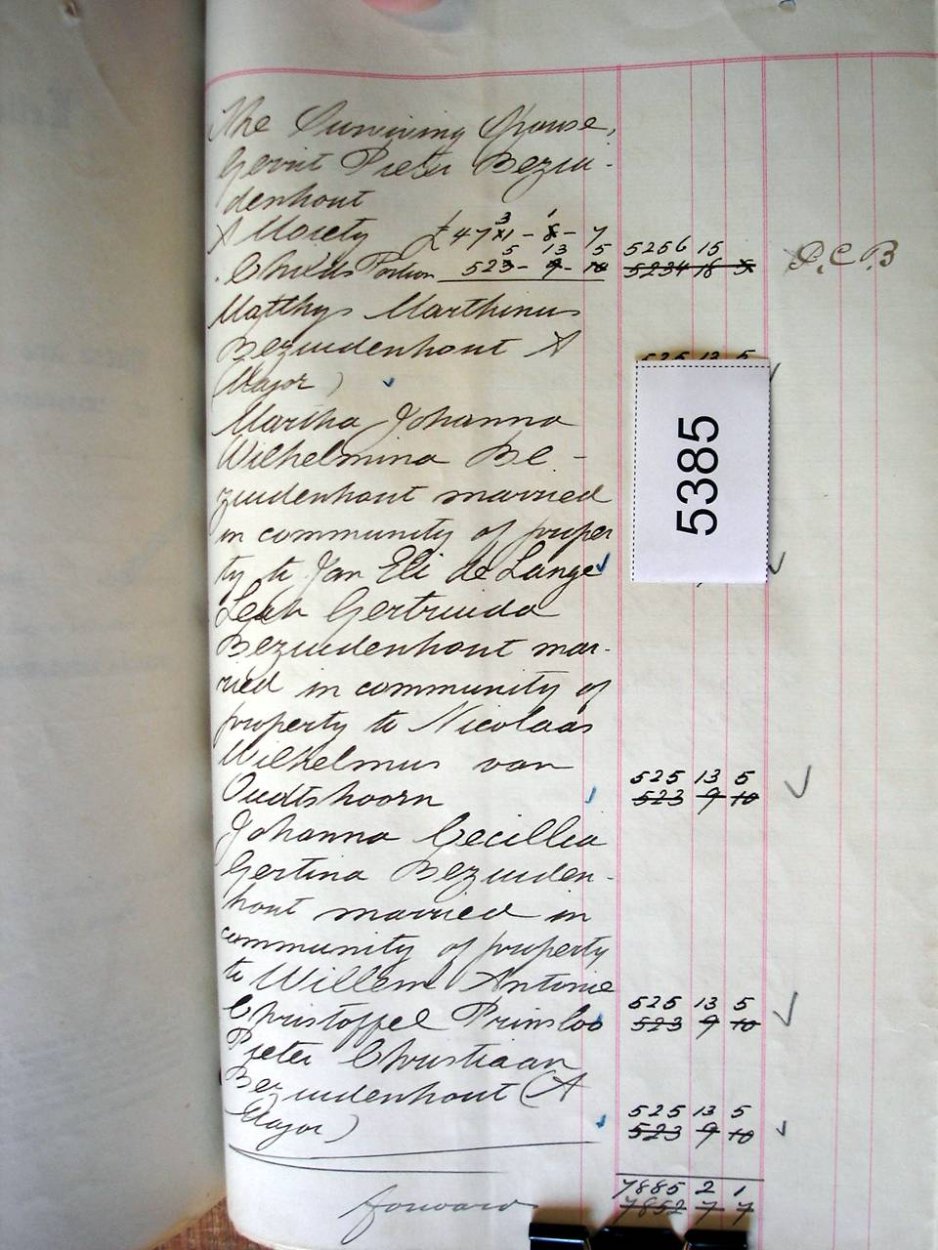 The Surviving Spouse,
Gerrit Pieter Bezui-
denhout
A Moiety £4731 - 1 8 - 7 5256 15
Childs Portion 525 13 5 5234 18 5 D.C.B
Matthys Marthinus
Bezuidenhout A 525 13 5
Major)
Martha Johanna
Wilhelmina Be-
zuidenhout married
in community of proper
ty to Jan Eli de Lange
5385
Leah Gertruida
Bezuidenhout mar-
ried in community of
property to Nicolaas
Wilhelmus van
525 13 5
Oudtshoorn 523 9 10
Johanna Cecillia
Gertina Bezuiden-
hout married in
community of property
to Willem Antonie
525 13 5
Christoffel Prinsloo 523 9 10
Pieter Christiaan
Bezuidenhout (A
525 13 5
Major) 523 9 10
7885 2 1
forward 7852 7 7